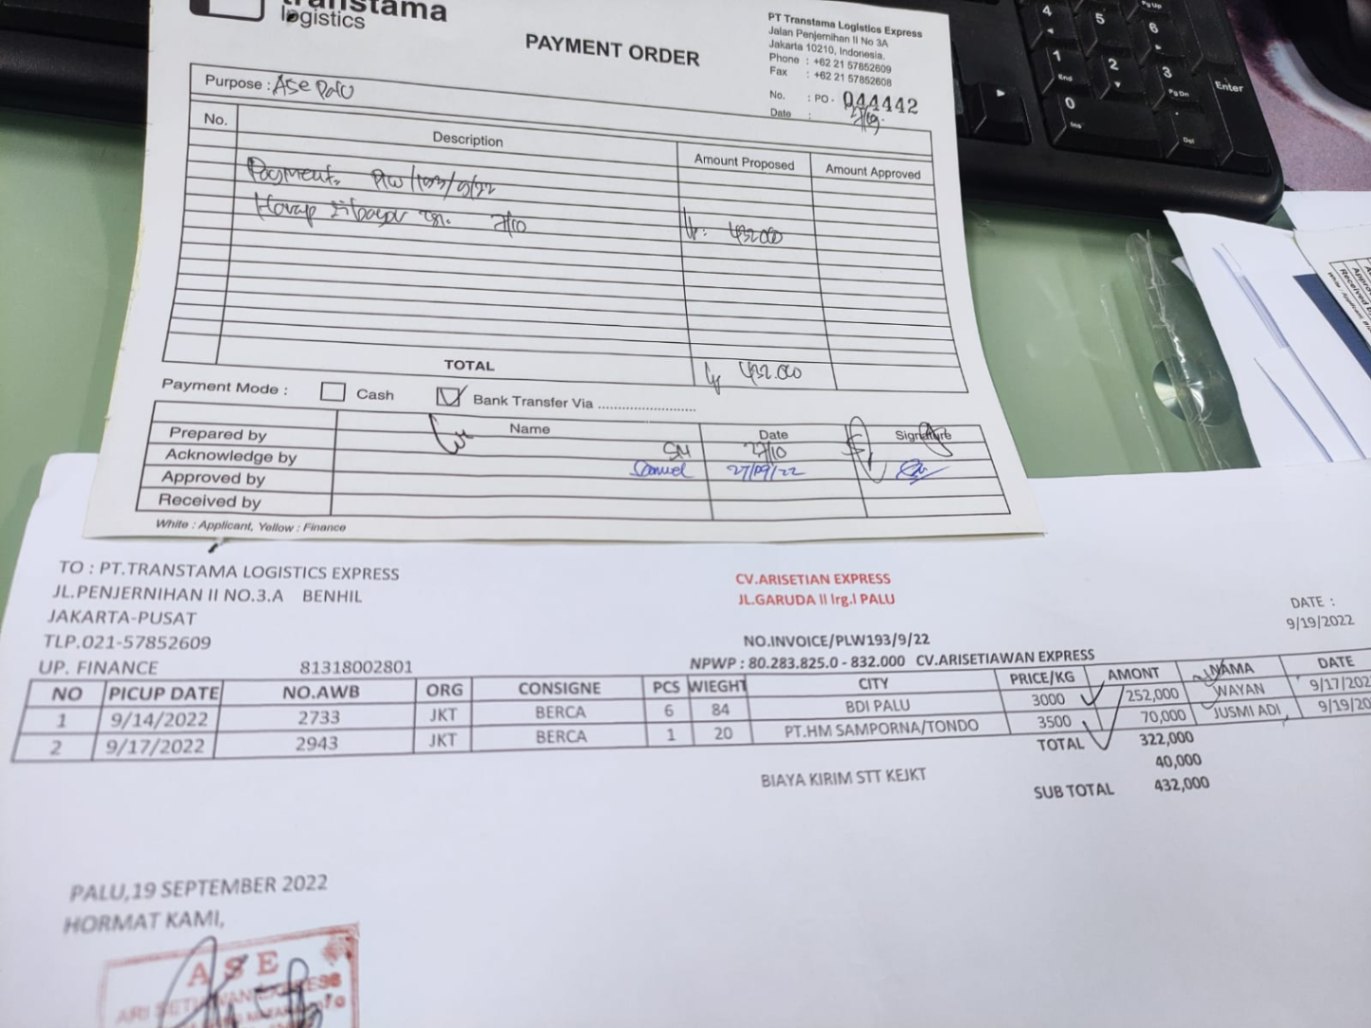 transtama
logistics
PAYMENT ORDER
PT Transtama Logistics Express
Jalan Penjernihan II No 3A
Jakarta 10210, Indonesia.
Phone : +62 21 57852609
Fax : +62 21 57852608
No. : PO - 044442
Date :
Purpose : Ase Palu
No. Description Amount Proposed Amount Approved
Payment PLW/193/9/22
Harap dibayar 7/10 Rp. 432.000
TOTAL Rp 432.000
Payment Mode : Cash Bank Transfer Via ........................
Name Date Signature
Prepared by
Acknowledge by SM 27/10
Approved by Samuel 27/09/22
Received by
White : Applicant, Yellow : Finance
TO : PT.TRANSTAMA LOGISTICS EXPRESS
JL.PENJERNIHAN II NO.3.A BENHIL
JAKARTA-PUSAT
TLP.021-57852609
UP. FINANCE 81318002801
CV.ARISETIAN EXPRESS
JL.GARUDA II lrg.I PALU
DATE :
9/19/2022
NO.INVOICE/PLW193/9/22
NPWP : 80.283.825.0 - 832.000 CV.ARISETIAWAN EXPRESS
NO PICUP DATE NO.AWB ORG CONSIGNE PCS WIEGHT CITY PRICE/KG AMONT NAMA DATE
1 9/14/2022 2733 JKT BERCA 6 84 BDI PALU 3000 252,000 WAYAN 9/17/202
2 9/17/2022 2943 JKT BERCA 1 20 PT.HM SAMPORNA/TONDO 3500 70,000 JUSMI ADI 9/19/20
TOTAL 322,000
BIAYA KIRIM STT KEJKT 40,000
SUB TOTAL 432,000
PALU,19 SEPTEMBER 2022
HORMAT KAMI,
A S E
ARI SETIAWAN EXPRESS